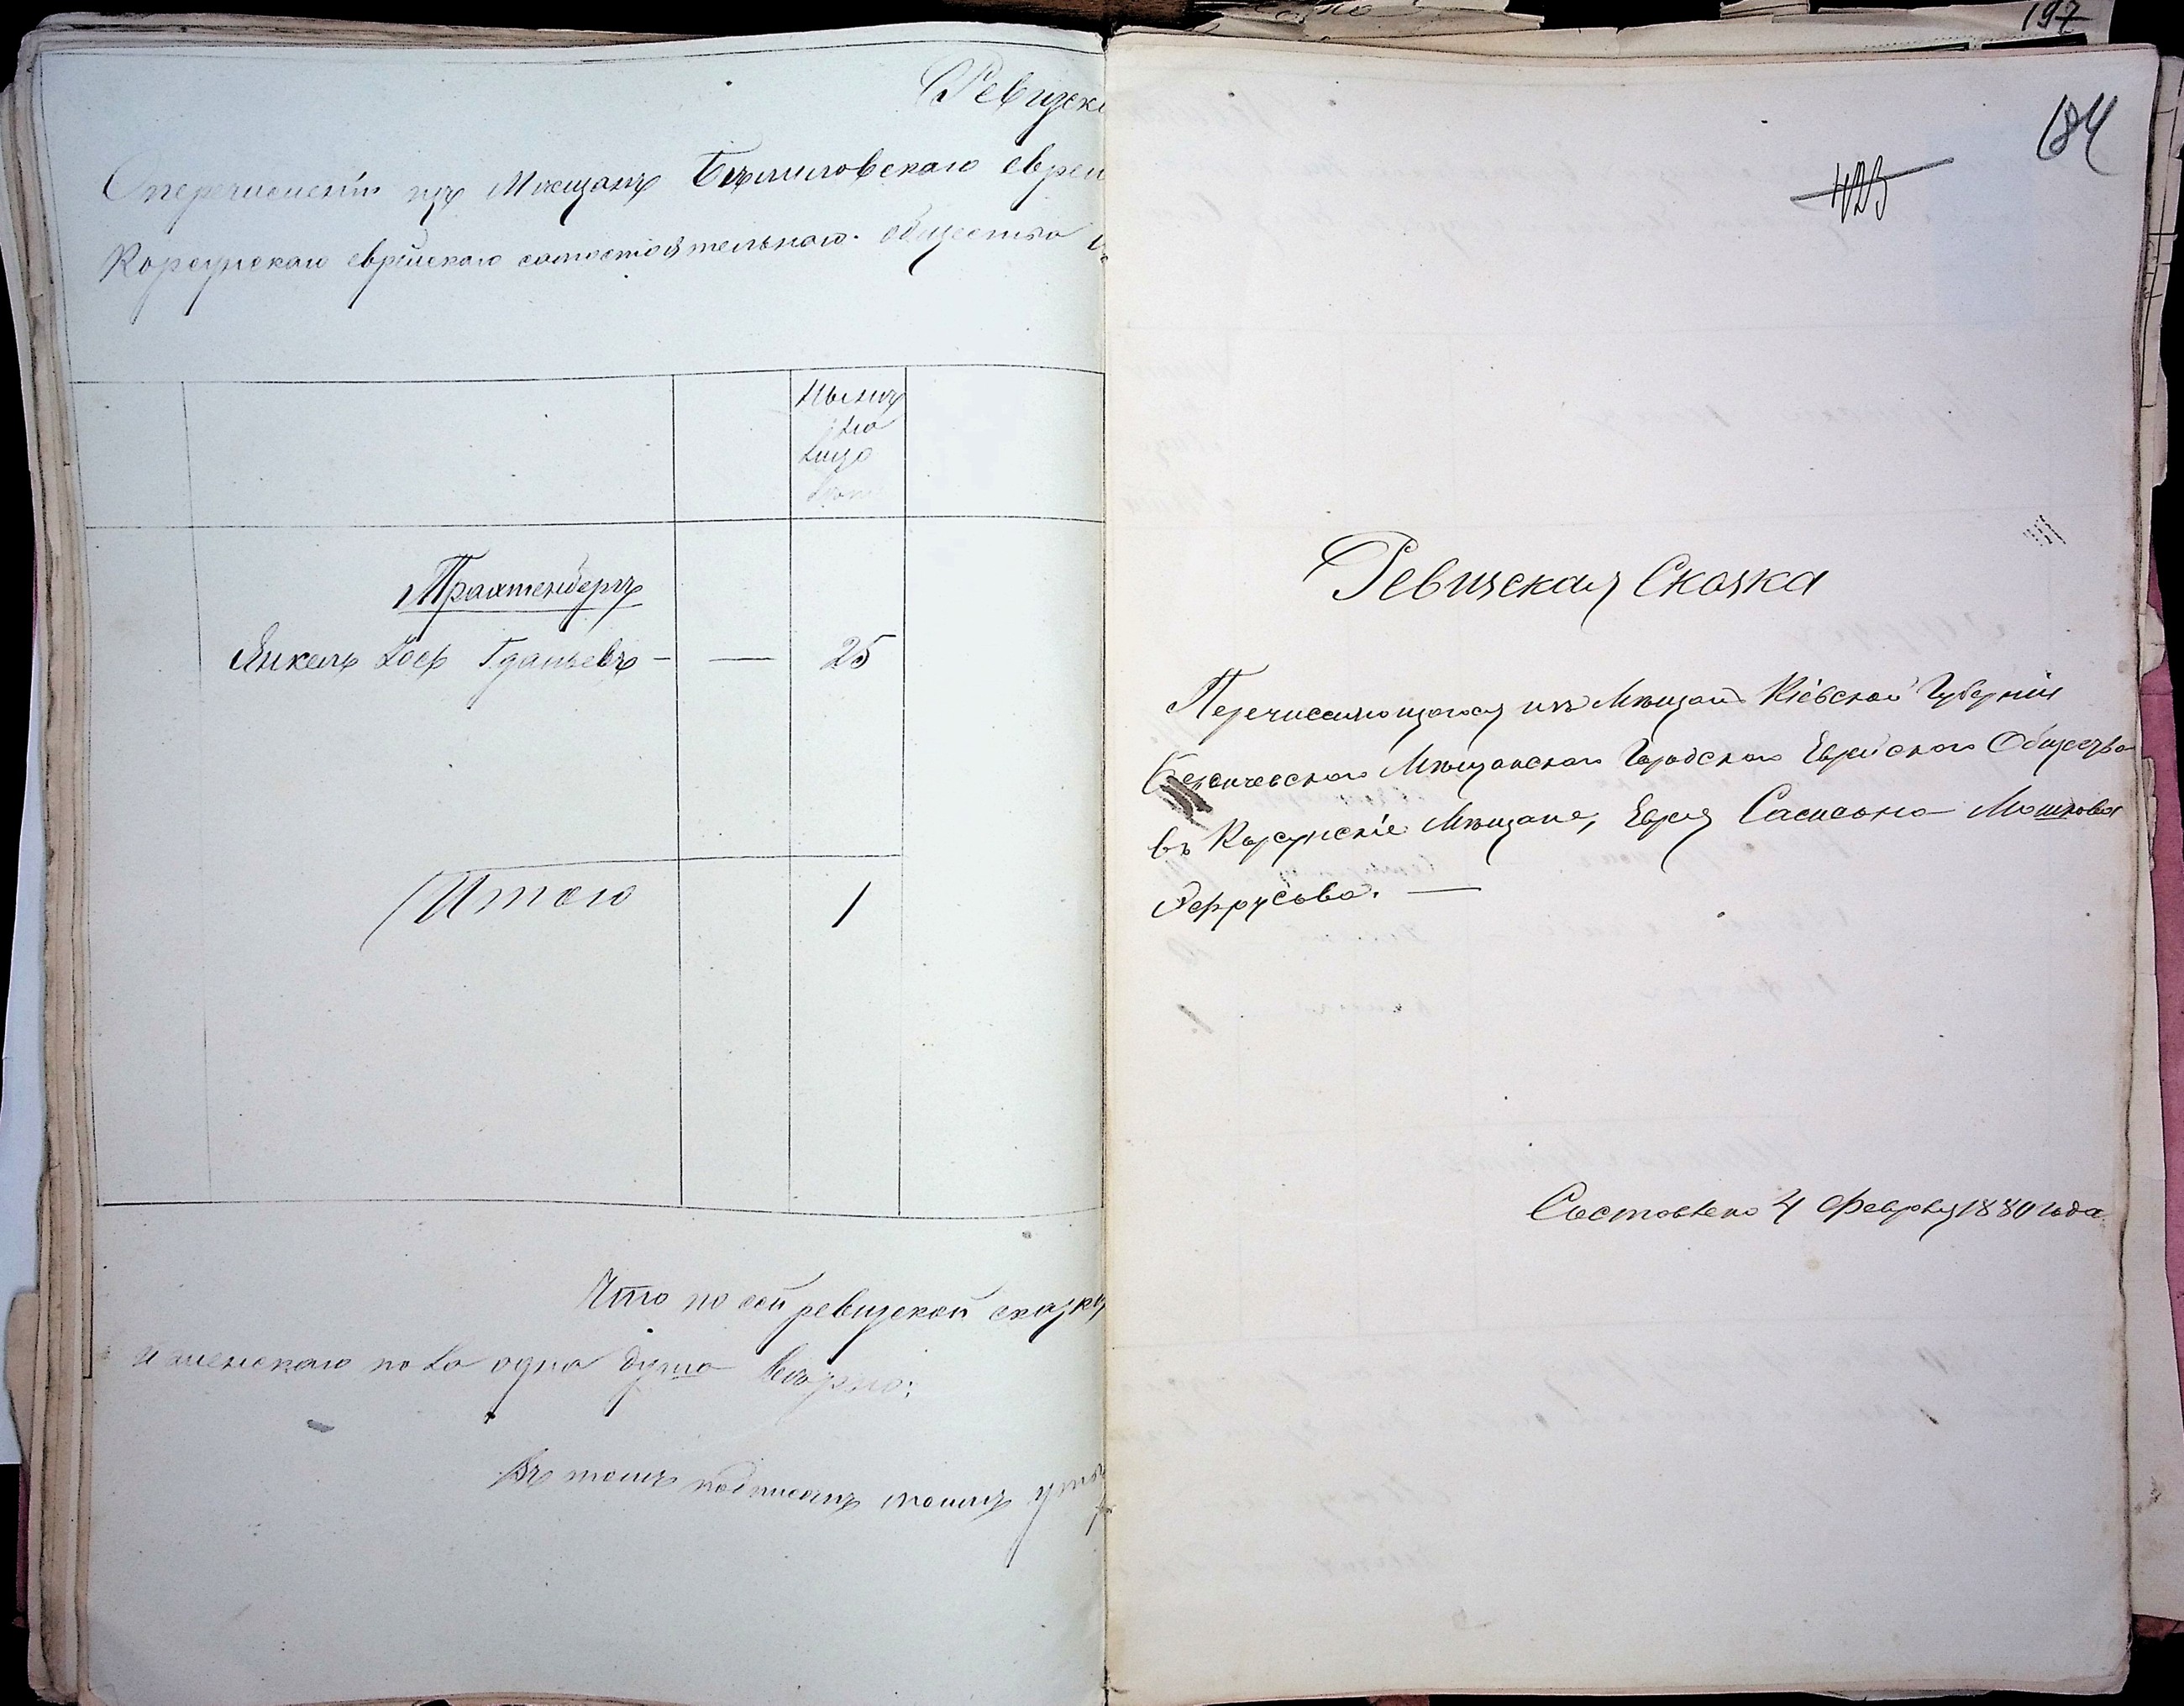 Ревизск
О перечислении изъ Мещанъ Бѣлиловскаго еврей
Корсунскаго еврейскаго самостоятельнаго общества
Нынѣ
на
лицо
Трахтенбергъ
Янкель Іось Гдальевъ — — 25
Итого 1
Что по сей ревизской сказкѣ
женскаго пола одна душа вѣрно:
Въ томъ подписомъ моимъ
197
184
423
Ревизская Сказка
Перечисляющагося изъ Мѣщанъ Кіевской Губерніи
Мѣщанскаго Городскаго Еврейскаго Общества
въ Корсунскіе Мѣщане, Еврея Самсона Мошкова
Эфрусова. —
Составлена 4 Февраля 1880 года